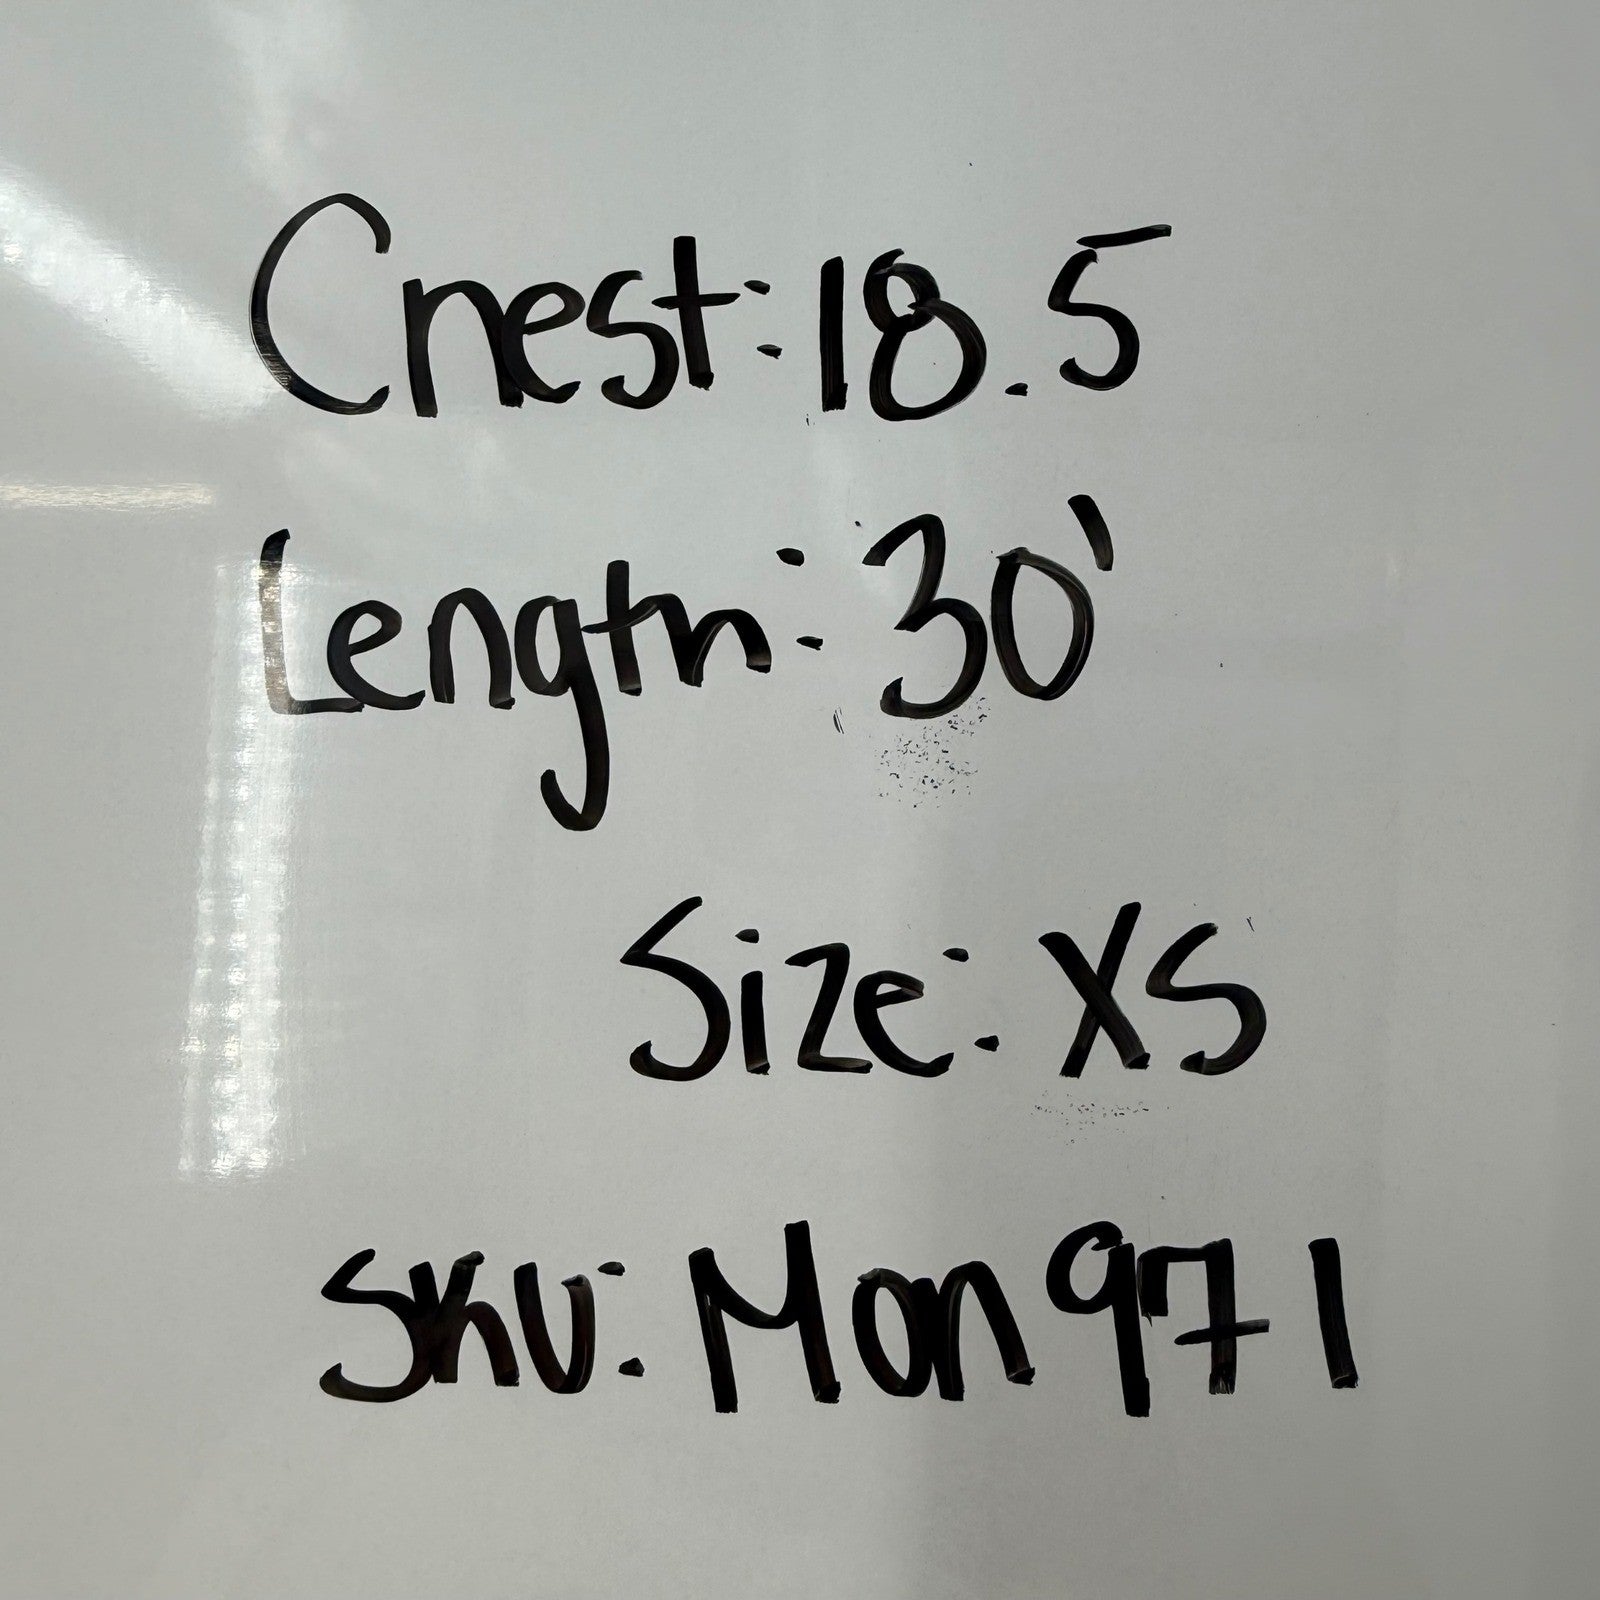 Chest: 18.5
Length: 30'
Size: XS
SKU: Mon971